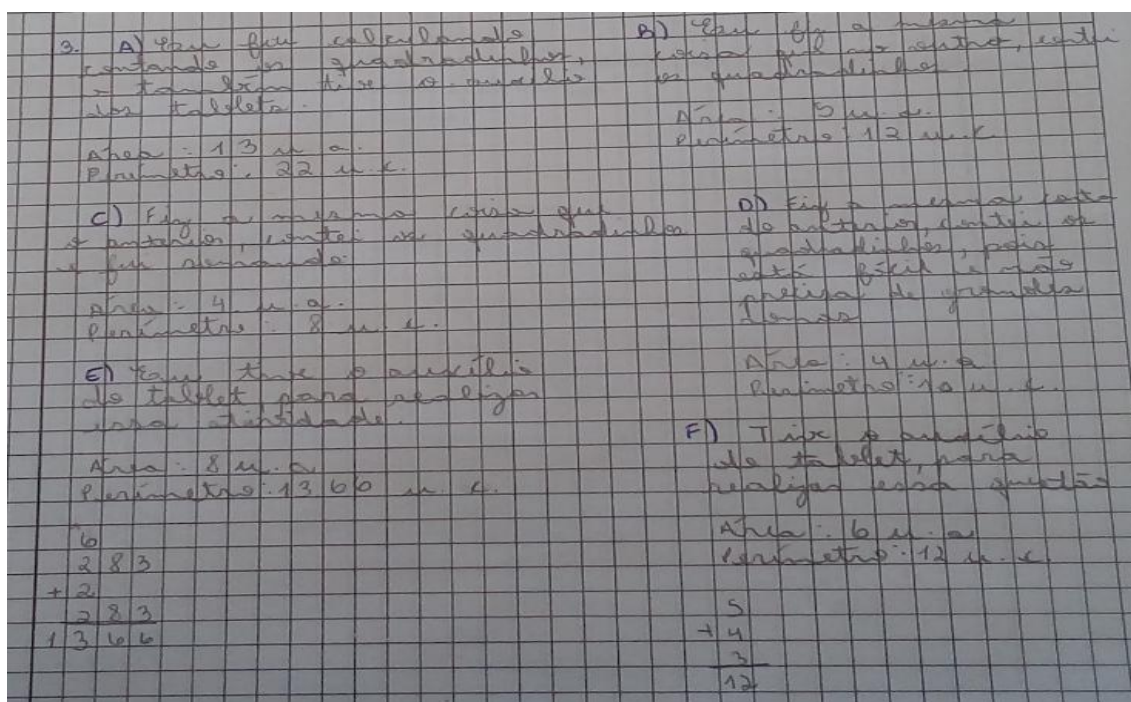 3. A) Eu fui calculando
contando os quadradinhos,
e também tive o auxílio
dos tablets.
Area: 13 u. a.
Perímetro: 22 u. c.
B) Eu fiz a mesma
coisa que no outro, contei
os quadradinhos
Área: 5 u. a.
Perímetro 12 u. c
C) Fiz a mesma coisa que
o anterior, contei os quadradinhos
e fui somando.
Área: 4 u. a.
Perímetro: 8 u. c.
D) Fiz a mesma coisa
do anterior, contei os
quadradinhos, pois
está fácil e não
precisa de grandes
Área: 4 u. a
Perímetro: 10 u. c.
E) Eu tive o auxílio
do tablet para realizar
essa atividade.
Área: 8 u. a
Perímetro: 1366 u. c.
6
283
+ 2
283
1366
F) Tive o auxílio
do tablet, para
realizar essa questão
Área: 6 u. a
Perímetro: 12 u. c
5
+ 4
3
12